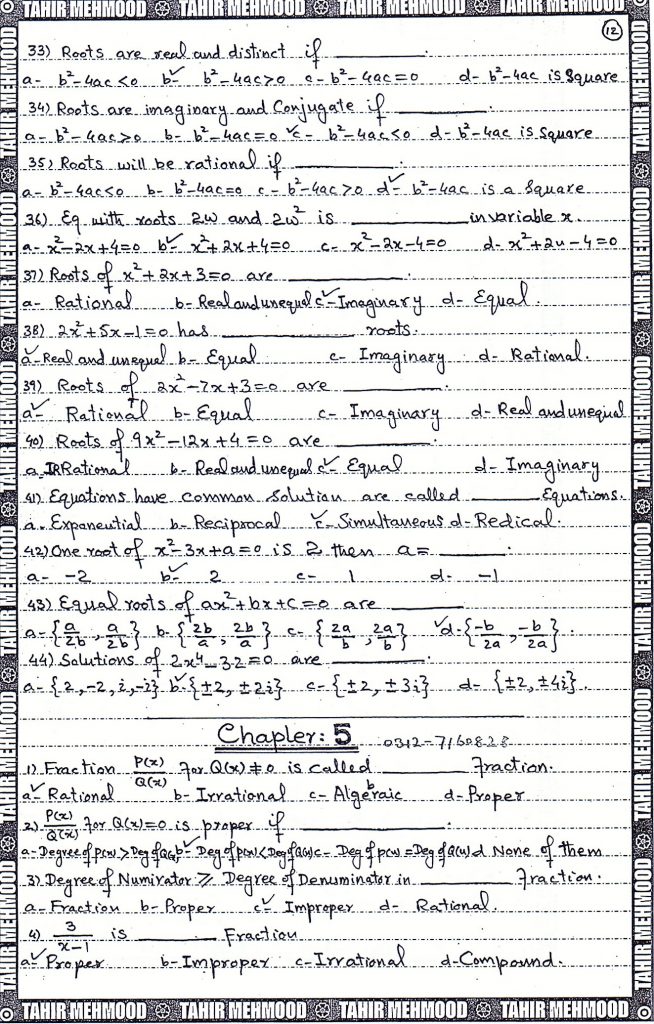 TAHIR MEHMOOD TAHIR MEHMOOD TAHIR MEHMOOD TAHIR MEHMOOD
12
33) Roots are real and distinct if ________.
a- b²-4ac<0 b-✓ b²-4ac>0 c- b²-4ac=0 d- b²-4ac is Square
34) Roots are imaginary and Conjugate if ________.
a- b²-4ac>0 b- b²-4ac=0 ✓c- b²-4ac<0 d- b²-4ac is Square
35) Roots will be rational if ________.
a- b²-4ac<0 b- b²-4ac=0 c- b²-4ac>0 d-✓ b²-4ac is a Square
36) Eq with roots 2ω and 2ω² is ________ in variable x.
a- x²-2x+4=0 b-✓ x²+2x+4=0 c- x²-2x-4=0 d- x²+2x-4=0
37) Roots of x²+2x+3=0 are ________.
a- Rational b- Real and unequal c-✓ Imaginary d- Equal.
38) 2x²+5x-1=0 has ________ roots.
a-✓ Real and unequal b- Equal c- Imaginary d- Rational.
39) Roots of 2x²-7x+3=0 are ________.
a-✓ Rational b- Equal c- Imaginary d- Real and unequal
40) Roots of 9x²-12x+4=0 are ________.
a- IRRational b- Real and unequal c-✓ Equal d- Imaginary
41) Equations have common Solution are called ________ Equations.
a- Expanential b- Reciprocal ✓c- Simultaneous d- Redical.
42) One root of x²-3x+a=0 is 2 then a= ________.
a- -2 b-✓ 2 c- 1 d- -1
43) Equal roots of ax²+bx+c=0 are ________
a- {a/2b, a/2b} b- {2b/a, 2b/a} c- {2a/b, 2a/b} ✓d- {-b/2a, -b/2a}.
44) Solutions of 2x⁴-32=0 are ________.
a- {2,-2,i,-i} b-✓ {±2, ±2i} c- {±2, ±3i} d- {±2, ±4i}.
Chapler: 5 0312-7160828
1) Fraction P(x)/Q(x) For Q(x)≠0 is called ________ Fraction.
a-✓ Rational b- Irrational c- Algebraic d- Proper
2) P(x)/Q(x) For Q(x)=0 is proper if ________.
a- Degree of P(x) > Deg of Q(x) b-✓ Deg of P(x) < Deg of Q(x) c- Deg of P(x) = Deg of Q(x) d None of them
3) Degree of Numirator ≥ Degree of Denuminator in ________ Fraction.
a- Fraction b- Proper c-✓ Improper d- Rational.
4) 3/x-1 is ________ Fraction
a-✓ Proper b- Improper c- Irrational d- Compound.
TAHIR MEHMOOD TAHIR MEHMOOD TAHIR MEHMOOD TAHIR MEHMOOD